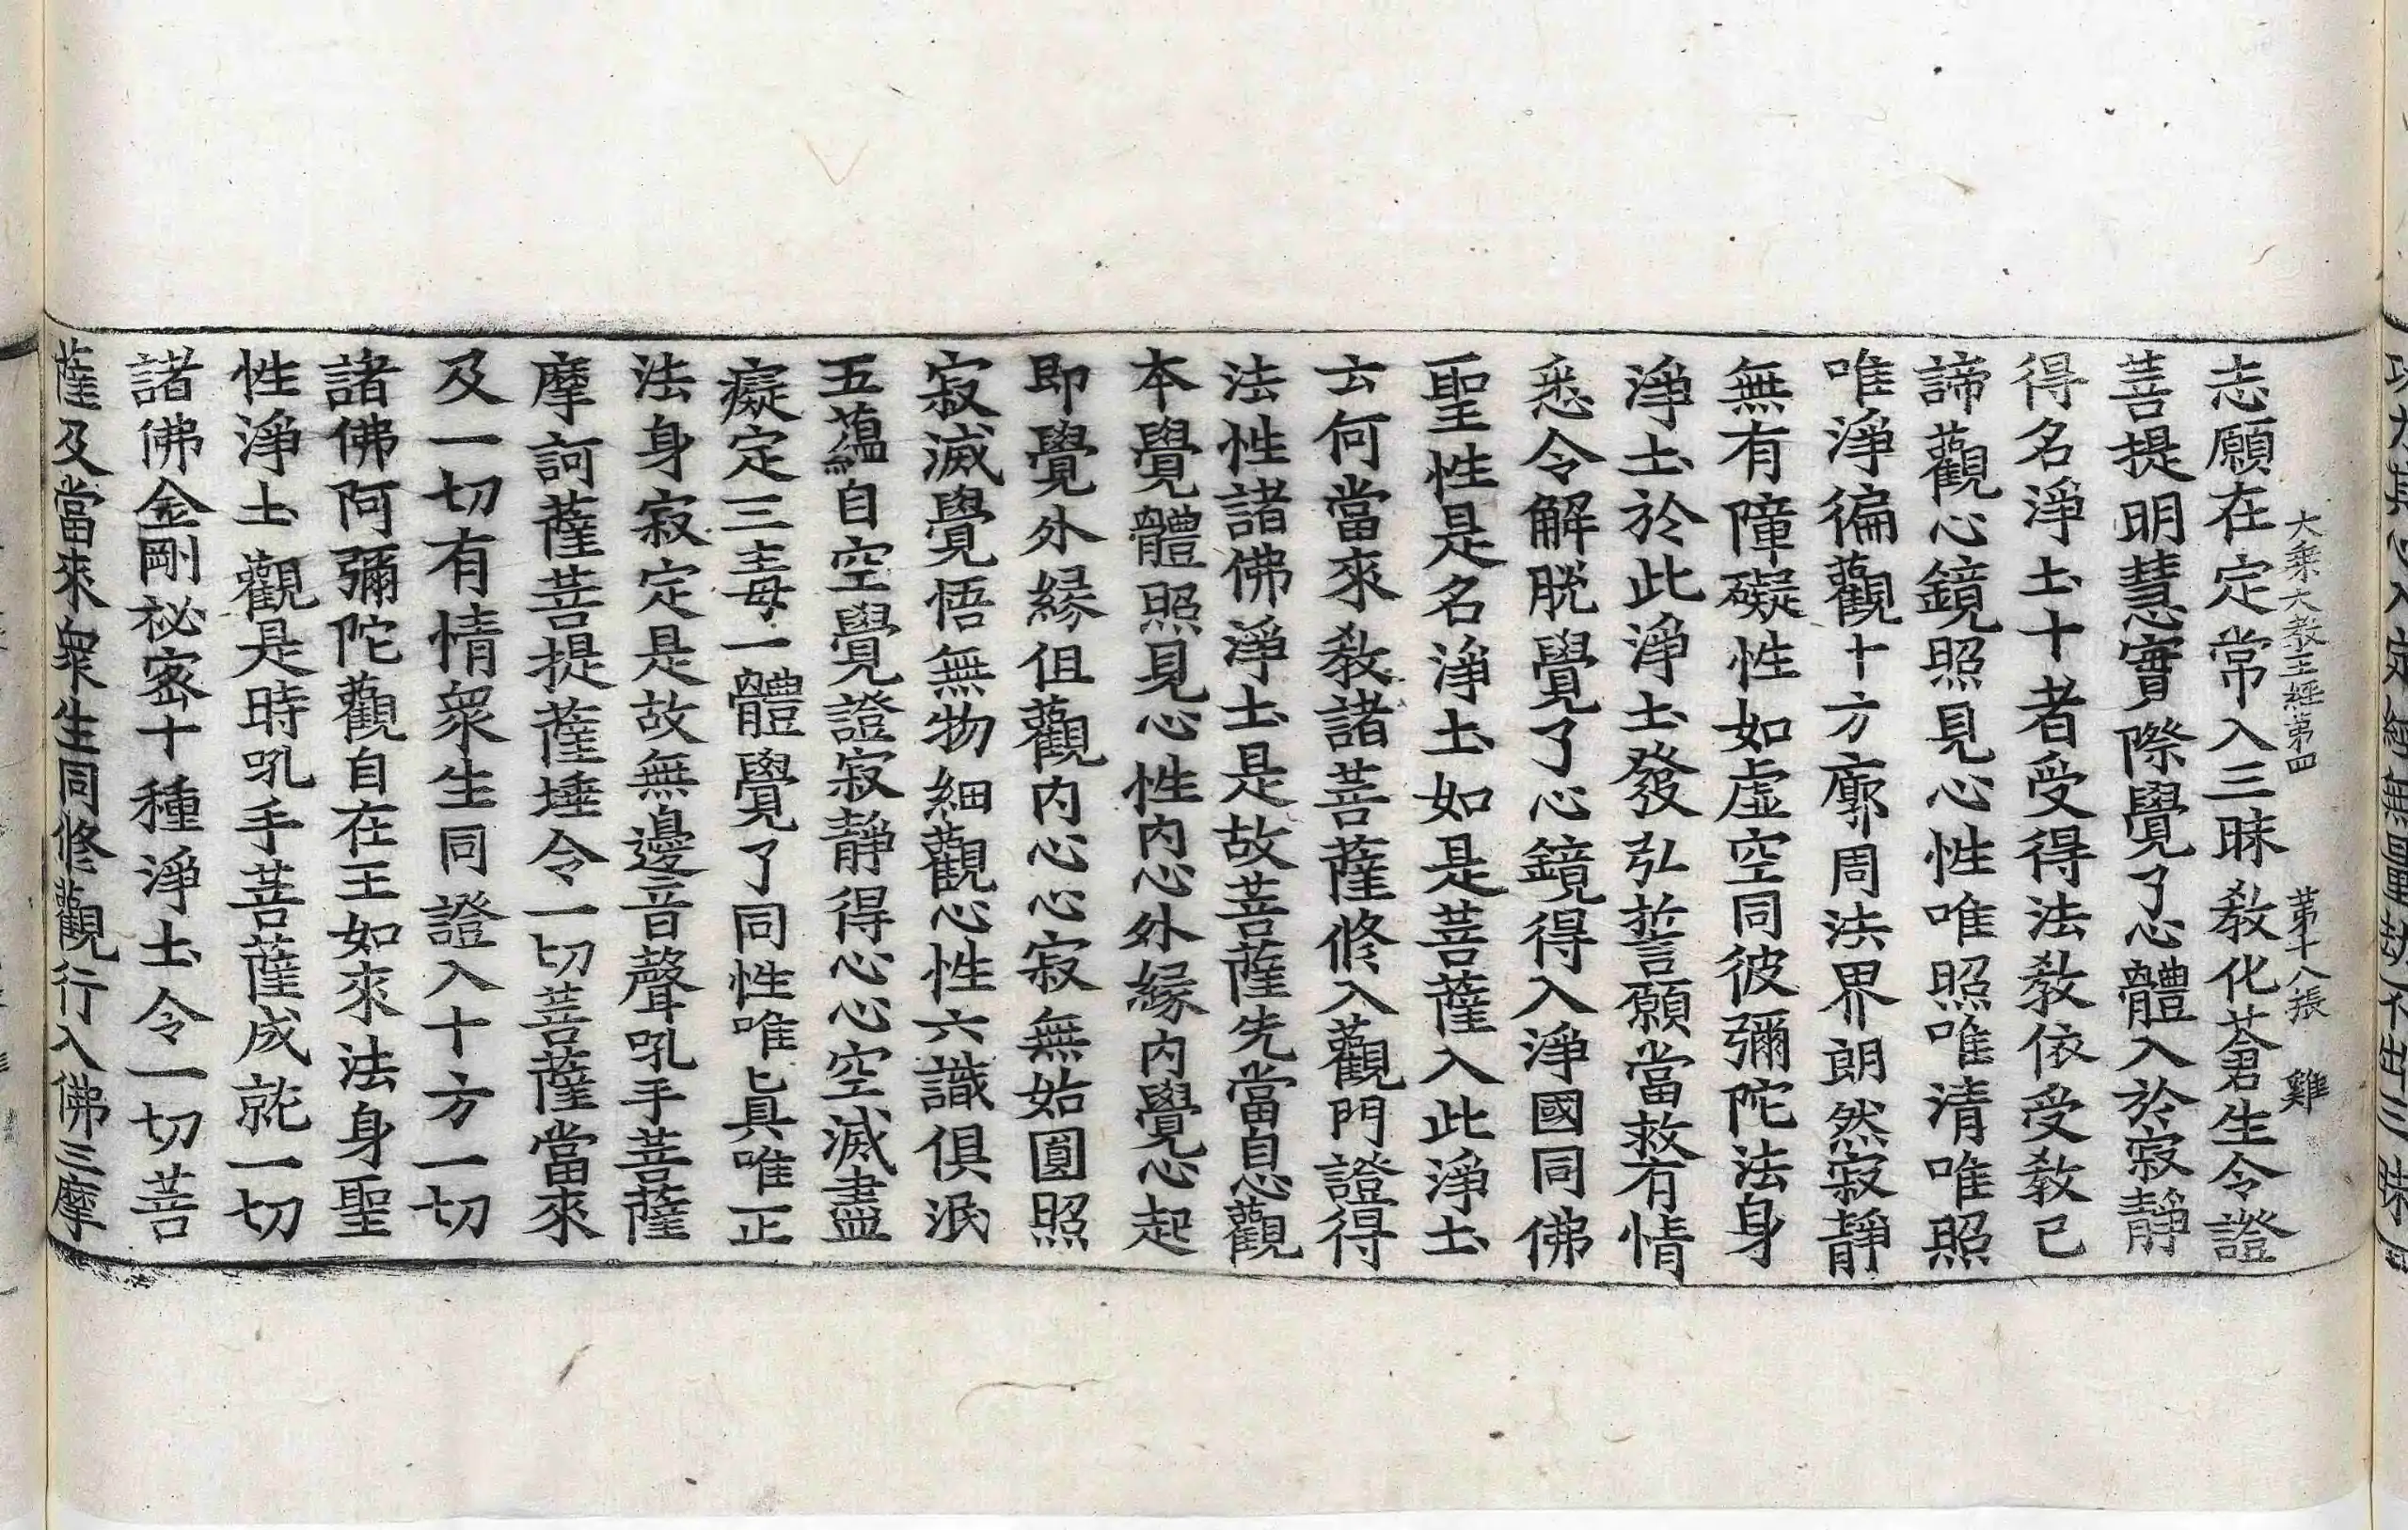 大乘大教王經第四 第十八張 雞
志願在定常入三昧教化蒼生令證
菩提明慧實際覺了心體入於寂靜
得名淨土十者受得法教依受教已
諦觀心鏡照見心性唯照唯清唯照
唯淨徧觀十方廓周法界朗然寂靜
無有障礙性如虛空同彼彌陀法身
淨土於此淨土發弘誓願當救有情
悉令解脫覺了心鏡得入淨國同佛
聖性是名淨土如是菩薩入此淨土
云何當來教諸菩薩修入觀門證得
法性諸佛淨土是故菩薩先當自心觀
本覺體照見心性內心外緣內覺心起
即覺外緣但觀內心心寂無始圓照
寂滅覺悟無物細觀心性六識俱泯
五蘊自空覺證寂靜得心心空滅盡
癡定三毒一體覺了同性唯真唯正
法身寂定是故無邊音聲吼手菩薩
摩訶薩菩提薩埵令一切菩薩當來
及一切有情眾生同證入十方一切
諸佛阿彌陀觀自在王如來法身聖
性淨土觀是時吼手菩薩成就一切
諸佛金剛祕密十種淨土令一切菩
薩及當來眾生同修觀行入佛三摩